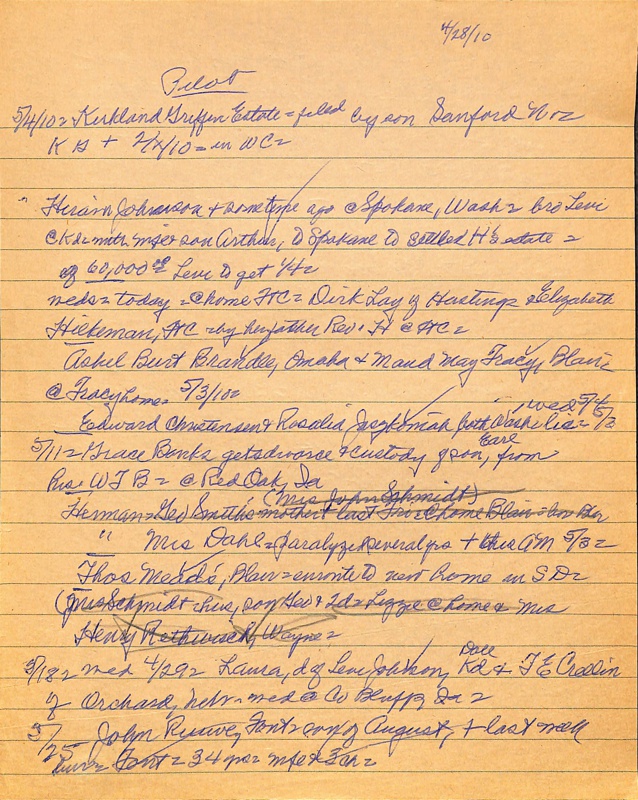 4/28/10
Pilot
5/4/10 = Kirkland Griffin Estate = filed by son Sanford N oz
K B + 2/12/10 = in WC =
" Hiram Johnson + sometime ago @ Spokane, Wash = bro Levi
@ Kd = with son Arthur, to Spokane to settled H's estate =
of 60,000 Levi to get 1/4 =
weds = today = @ home HC = Dirk Lay of Hastings & Elizabeth
Hickeman, HC = by her father Rev. H @ HC =
Ashel Burt Brandee, Omaha & Maud May Tracy, Blair =
@ Tracy home = 5/3/10 =
Edward Christensen & Rosalia both Wash lis = 5/2
, wed 5/4
5/11 = Grace Banks gets divorce & custody of son, Earl from
hus W T B = @ Red Oak, Ia
(Mrs John Schmidt)
Herman = Geo Smith's mother + last = @ home Blair =
" Mrs Dahl = paralyzed several yrs + this AM 5/3 =
Thos Meads, Blair = enroute to new home in SD =
(Mrs Schmidt = hus, son Geo & 2d = Lizzie @ home & Mrs
Henry Wayne =
5/18 = wed 4/29 = Laura, d of Levi Johnson, Kd & T E
of Orchard, Nebr = wed @ Co Bluffs, Ia =
5/25 John Ruwe, Font = son of August, + last week
bur = Font = 34 yrs = wife & 3 ch =